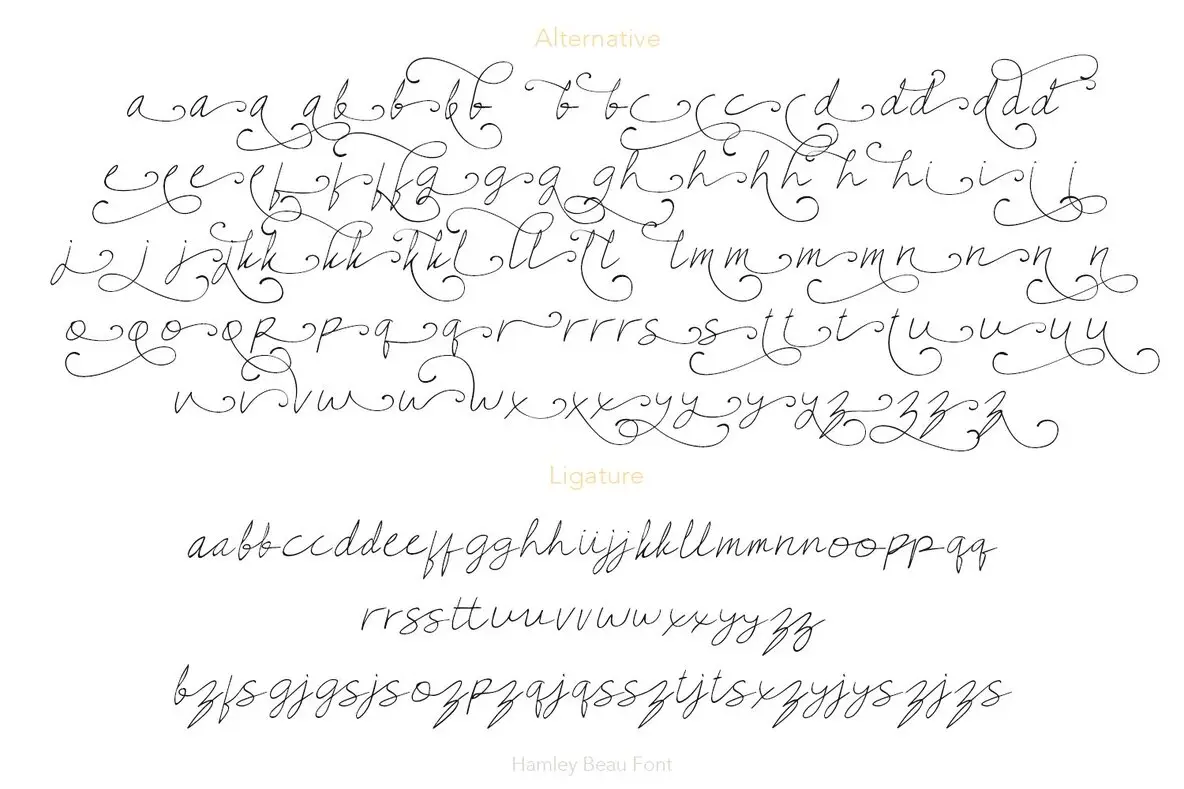 Alternative
a a a a b b b b b b c c c c d d d d d d
e e e e f f f f g g g g h h h h h h i i i j
j j j j k k k k k k l l l l l l m m m m n n n n
o o o o p p q q r r r r s s t t t t u u u u
v v v w w w x x x y y y y z z z z
Ligature
aabbccddeeffgghhiijjkkllmmnnooppqq
rrssttuuvvwwxxyyzz
bzfsgjgsjsozpzqjqssztjtsxzyjyszjzs
Hamley Beau Font